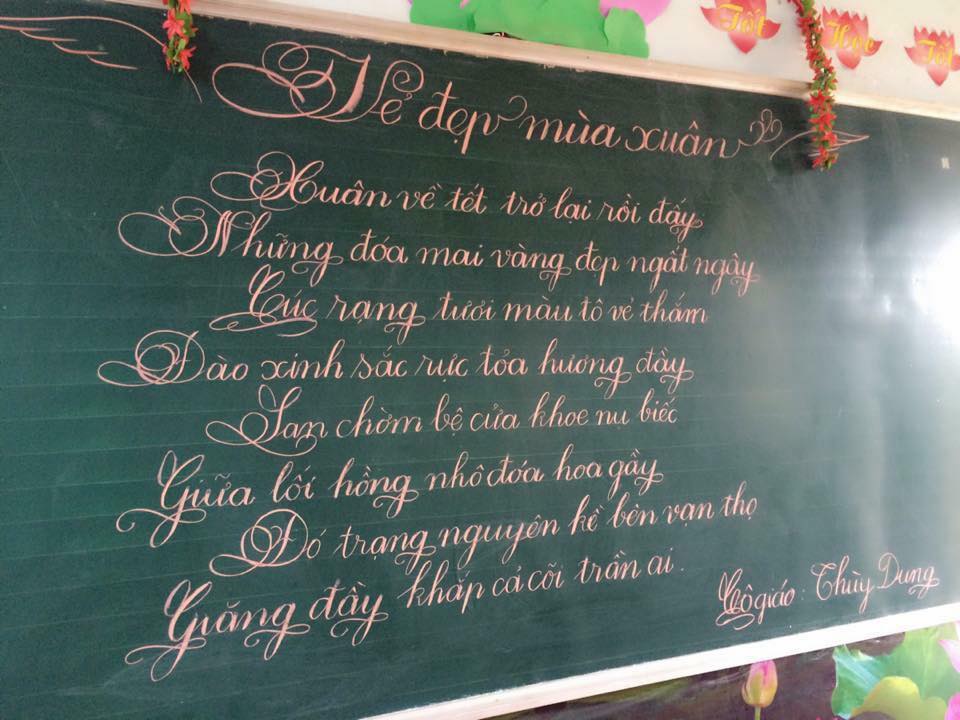 Tốt Học Tốt
Vẻ đẹp mùa xuân
Xuân về tết trở lại rồi đấy
Những đóa mai vàng đẹp ngất ngây
Cúc rạng tươi màu tô vẻ thắm
Đào xinh sắc rực tỏa hương đầy
Lan chờm bệ cửa khoe nu biếc
Giữa lối hồng nhô đóa hoa gầy
Đó trạng nguyên kề bên vạn thọ
Giăng đầy khắp cả cõi trần ai.
Cô giáo: Thùy Dung